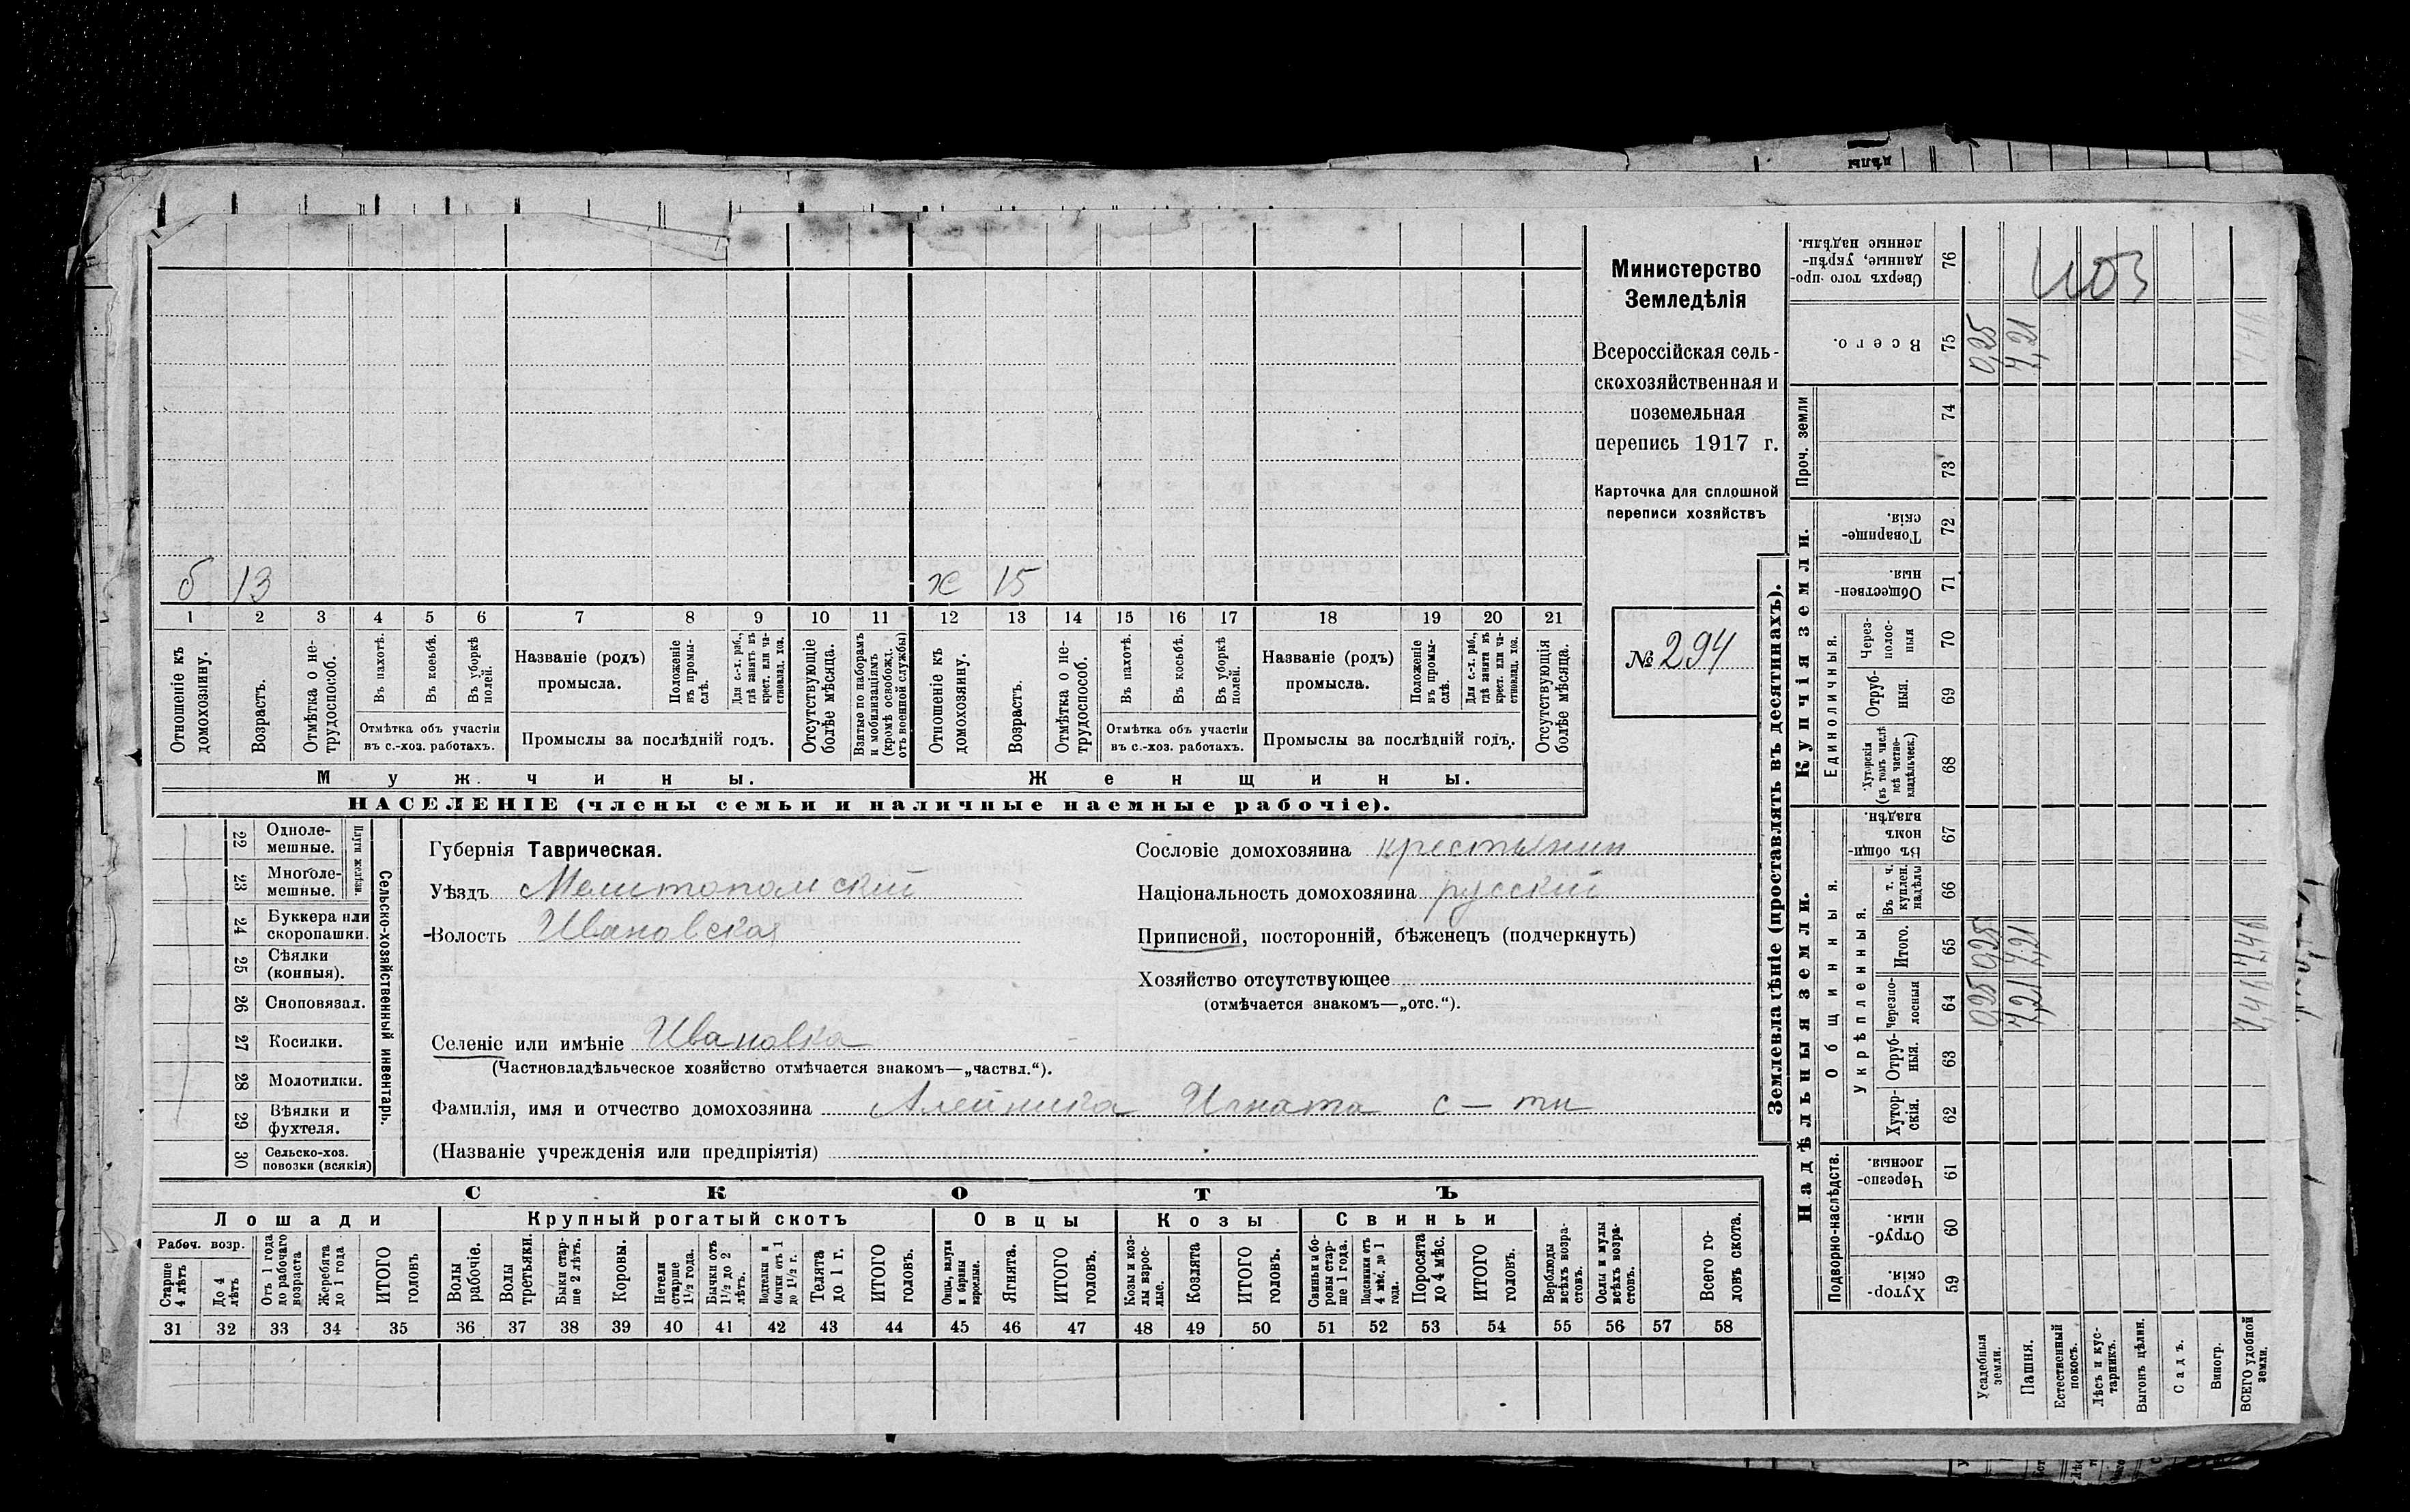 Министерство
Земледѣлія
Всероссійская сель-
скохозяйственная и
поземельная
перепись 1917 г.
Карточка для сплошной
переписи хозяйствъ
№ 294
б 13 ж 15
1 2 3 4 5 6 7 8 9 10 11 12 13 14 15 16 17 18 19 20 21
Отношеніе къ домохозяину.
Возрастъ.
Отмѣтка о не-трудоспособ.
Въ пахотѣ.
Въ косьбѣ.
Въ уборкѣ полей.
Отмѣтка объ участіи
въ с.-хоз. работахъ.
Названіе (родъ)
промысла.
Положеніе въ промы-слѣ.
Для с.-х. раб., гдѣ занятъ въ крест. или ча-стновлад. хоз.
Промыслы за послѣдній годъ.
Отсутствующіе болѣе мѣсяца.
Взятые по наборамъ и мобилизаціямъ (кромѣ освобожд. отъ военной службы)
Отношеніе къ домохозяину.
Возрастъ.
Отмѣтка о не-трудоспособ.
Въ пахотѣ.
Въ косьбѣ.
Въ уборкѣ полей.
Отмѣтка объ участіи
въ с.-хоз. работахъ.
Названіе (родъ)
промысла.
Положеніе въ промы-слѣ.
Для с.-х. раб., гдѣ занята въ крест. или ча-стновлад. хоз.
Промыслы за послѣдній годъ.
Отсутствующія болѣе мѣсяца.
Мужчины. Женщины.
НАСЕЛЕНІЕ (члены семьи и наличные наемные рабочіе).
22 Одноле-мешные.
23 Многоле-мешные.
Плуги желѣзн.
24 Буккера или скоропашки.
25 Сѣялки (конныя).
26 Сноповязал.
27 Косилки.
28 Молотилки.
29 Вѣялки и фухтеля.
30 Сельско-хоз. повозки (всякія)
Сельско-хозяйственный инвентарь.
Губернія Таврическая.
Уѣздъ Мелитопольскій
Волость Ивановская
Сословіе домохозяина крестьянин
Національность домохозяина русскій
Приписной, посторонній, бѣженецъ (подчеркнуть)
Хозяйство отсутствующее
(отмѣчается знакомъ—„отс.“).
Селеніе или имѣніе Ивановка
(Частновладѣльческое хозяйство отмѣчается знакомъ—„частвл.“).
Фамилія, имя и отчество домохозяина Алейника Игната с-ты
(Названіе учрежденія или предпріятія)
СКОТЪ
Лошади Крупный рогатый скотъ Овцы Козы Свиньи
Рабоч. возр.
Старше 4 лѣтъ
До 4 лѣтъ
Отъ 1 года до рабочаго возраста
Жеребята до 1 года
ИТОГО головъ
Волы рабочіе.
Волы третьяки.
Быки стар-ше 2 лѣтъ.
Коровы.
Нетели старше 1½ года.
Бычки отъ 1½ до 2 лѣтъ.
Подтелки и бычки отъ 1 до 1½ г.
Телята до 1 г.
ИТОГО головъ.
Овцы, валухи и бараны взрослые.
Ягнята.
ИТОГО головъ.
Козы и коз-лы взрос-лые.
Козлята
ИТОГО головъ.
Свиньи и бо-ровы стар-ше 1 года.
Подсвинки отъ 4 мѣс. до 1 года.
Поросята до 4 мѣс.
ИТОГО головъ.
Верблюды всѣхъ возра-стовъ.
Ослы и мулы всѣхъ возра-стовъ.
Всего го-ловъ скота.
31 32 33 34 35 36 37 38 39 40 41 42 43 44 45 46 47 48 49 50 51 52 53 54 55 56 57 58
Землевладѣніе (проставлять въ десятинахъ).
Надѣльныя земли. Купчія земли.
Проч. земли
Сверхъ того про-данные, укрѣп-ленные надѣлы. 76
Всего. 75 0,25 7,21 7,46
74
73
Товарище-скія. 72
Обществен-ныя. 71
Единоличныя.
Через-полос-ныя 70
Отруб-ныя. 69
Хуторскія (въ томъ числѣ всѣ частно-владѣльческ.) 68
Общинныя.
Въ общин-номъ владѣн. 67
Укрѣпленныя.
Въ т. ч. куплен. надѣлы 66
Итого. 65 0,25 7,21 7,46
Черезпо-лосныя 64 0,25 7,21 7,46
Отруб-ныя. 63
Хутор-скія. 62
Подворно-наслѣдств.
Черезпо-лосныя. 61
Отруб-ныя. 60
Хутор-скія. 59
Усадебныя земли.
Пашня.
Естественный покосъ.
Лѣсъ и кус-тарникъ.
Выгонъ цѣлин.
Садъ.
Виногр.
ВСЕГО удобной земли.
дѣлы